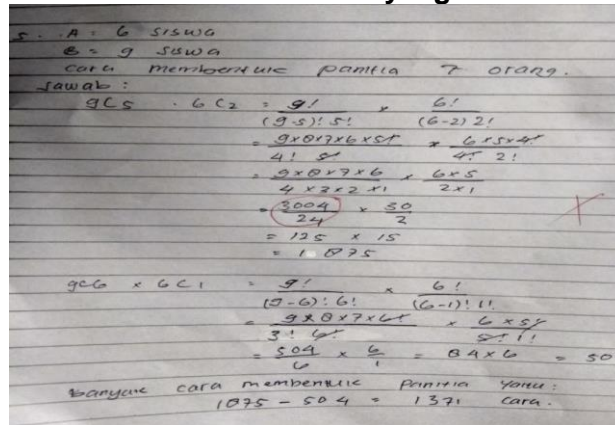 5. A = 6 siswa
B = 9 siswa
cara membentuk panitia 7 orang.
Jawab :
9C5 . 6C2 = 9! / (9-5)! 5! × 6! / (6-2) 2!
= 9×8×7×6×5! / 4! 5! × 6×5×4! / 4! 2!
= 9×8×7×6 / 4×3×2×1 × 6×5 / 2×1
= 3004 / 24 × 30 / 2
= 125 × 15
= 1875
9C6 × 6C1 = 9! / (9-6)! 6! × 6! / (6-1)! 1!
= 9×8×7×6! / 3! 6! × 6×5! / 5! 1!
= 504 / 6 × 6 / 1 = 84×6 = 50
banyak cara membentuk panitia yaitu :
1875 - 504 = 1371 cara.